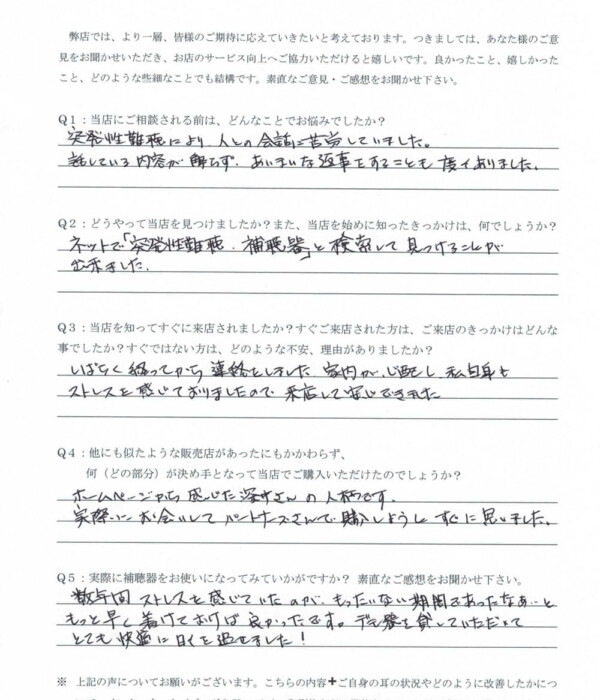 弊店では、より一層、皆様のご期待に応えていきたいと考えております。つきましては、あなた様のご意
見をお聞かせいただき、お店のサービス向上へご協力いただけると嬉しいです。良かったこと、嬉しかった
こと、どのような些細なことでも結構です。素直なご意見・ご感想をお聞かせ下さい。
Q1：当店にご相談される前は、どんなことでお悩みでしたか？
突発性難聴により 人との会話に苦労していました。
話している内容が解らず、あいまいな返事をすることも度々ありました。
Q2：どうやって当店を見つけましたか？また、当店を始めに知ったきっかけは、何でしょうか？
ネットで「突発性難聴．補聴器」と検索して見つけることが
出来ました．
Q3：当店を知ってすぐに来店されましたか？すぐご来店された方は、ご来店のきっかけはどんな
事でしたか？すぐではない方は、どのような不安、理由がありましたか？
しばらく経ってから 連絡をしました 家内が心配し 私自身も
ストレスを感じておりましたので 来店して安心できました
Q4：他にも似たような販売店があったにもかかわらず、
何（どの部分）が決め手となって当店でご購入いただけたのでしょうか？
ホームページから感じた深井さんの人柄です．
実際にお会いして パートナーズさんで購入しようと すぐに思いました。
Q5：実際に補聴器をお使いになってみていかがですか？ 素直なご感想をお聞かせ下さい。
数年間 ストレスを感じていたのが、もったいない期間であったなぁーと
もっと早く着けておけば良かったです。デモ器を貸していただいて
とても快適に日々を過せました！
※ 上記の声についてお願いがございます。こちらの内容＋ご自身の耳の状況やどのように改善したかにつ